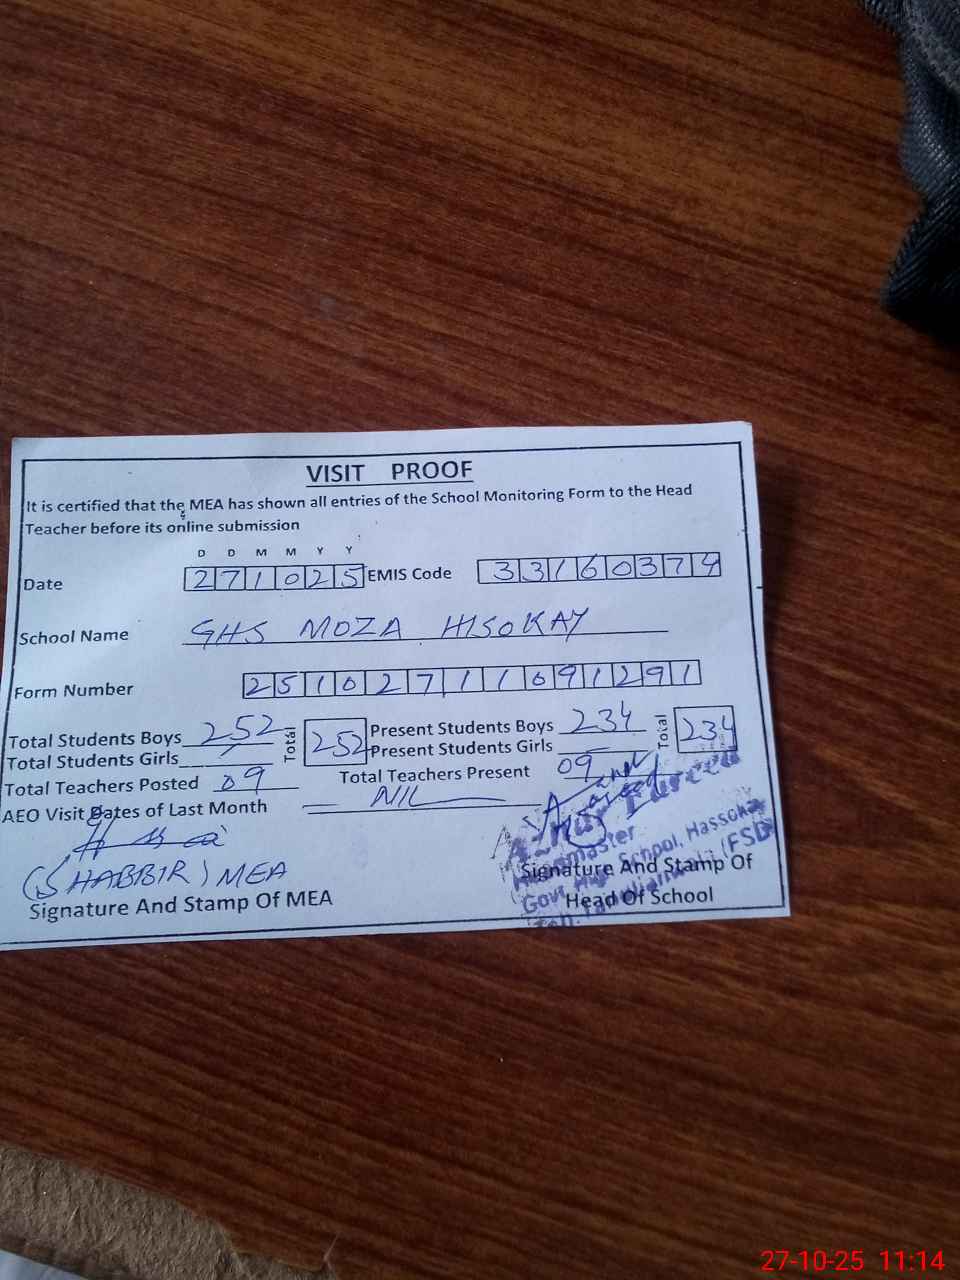 VISIT PROOF
It is certified that the MEA has shown all entries of the School Monitoring Form to the Head
Teacher before its online submission
D D M M Y Y
Date 271025 EMIS Code 33160374
School Name GHS MOZA HISOKAY
Form Number 25102711091291
Total Students Boys 252 Total 252 Present Students Boys 234 Total 234
Total Students Girls Present Students Girls
Total Teachers Posted 09 Total Teachers Present 09
AEO Visit Dates of Last Month NIL
(SHABBIR) MEA
Signature And Stamp Of MEA
Headmaster
Govt. High School, Hassoka
(FSD)
Signature And Stamp Of
Head Of School
27-10-25 11:14